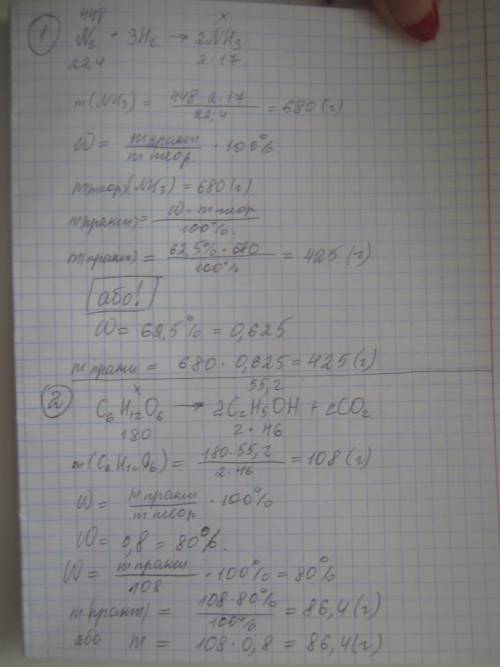 ① 448 x
N₂ + 3H₂ → 2NH₃
22,4 2·17
m(NH₃) = 448·2·17 / 22,4 = 680 (г)
W = m практ / m теор. · 100%
m(теор)(NH₃) = 680 (г)
m(практ) = W · m теор / 100%.
m(практ) = 62,5% · 680 / 100% = 425 (г)
або!
W = 62,5% = 0,625
m практ = 680 · 0,625 = 425 (г)
② x 55,2
C₆H₁₂O₆ → 2C₂H₅OH + 2CO₂
180 2·46
m(C₆H₁₂O₆) = 180·55,2 / 2·46 = 108 (г)
W = m практ / m теор · 100%
W = 0,8 = 80%.
W = m практ / 108 · 100% = 80%
m(практ) = 108·80% / 100% = 86,4 (г)
або m = 108·0,8 = 86,4 (г)